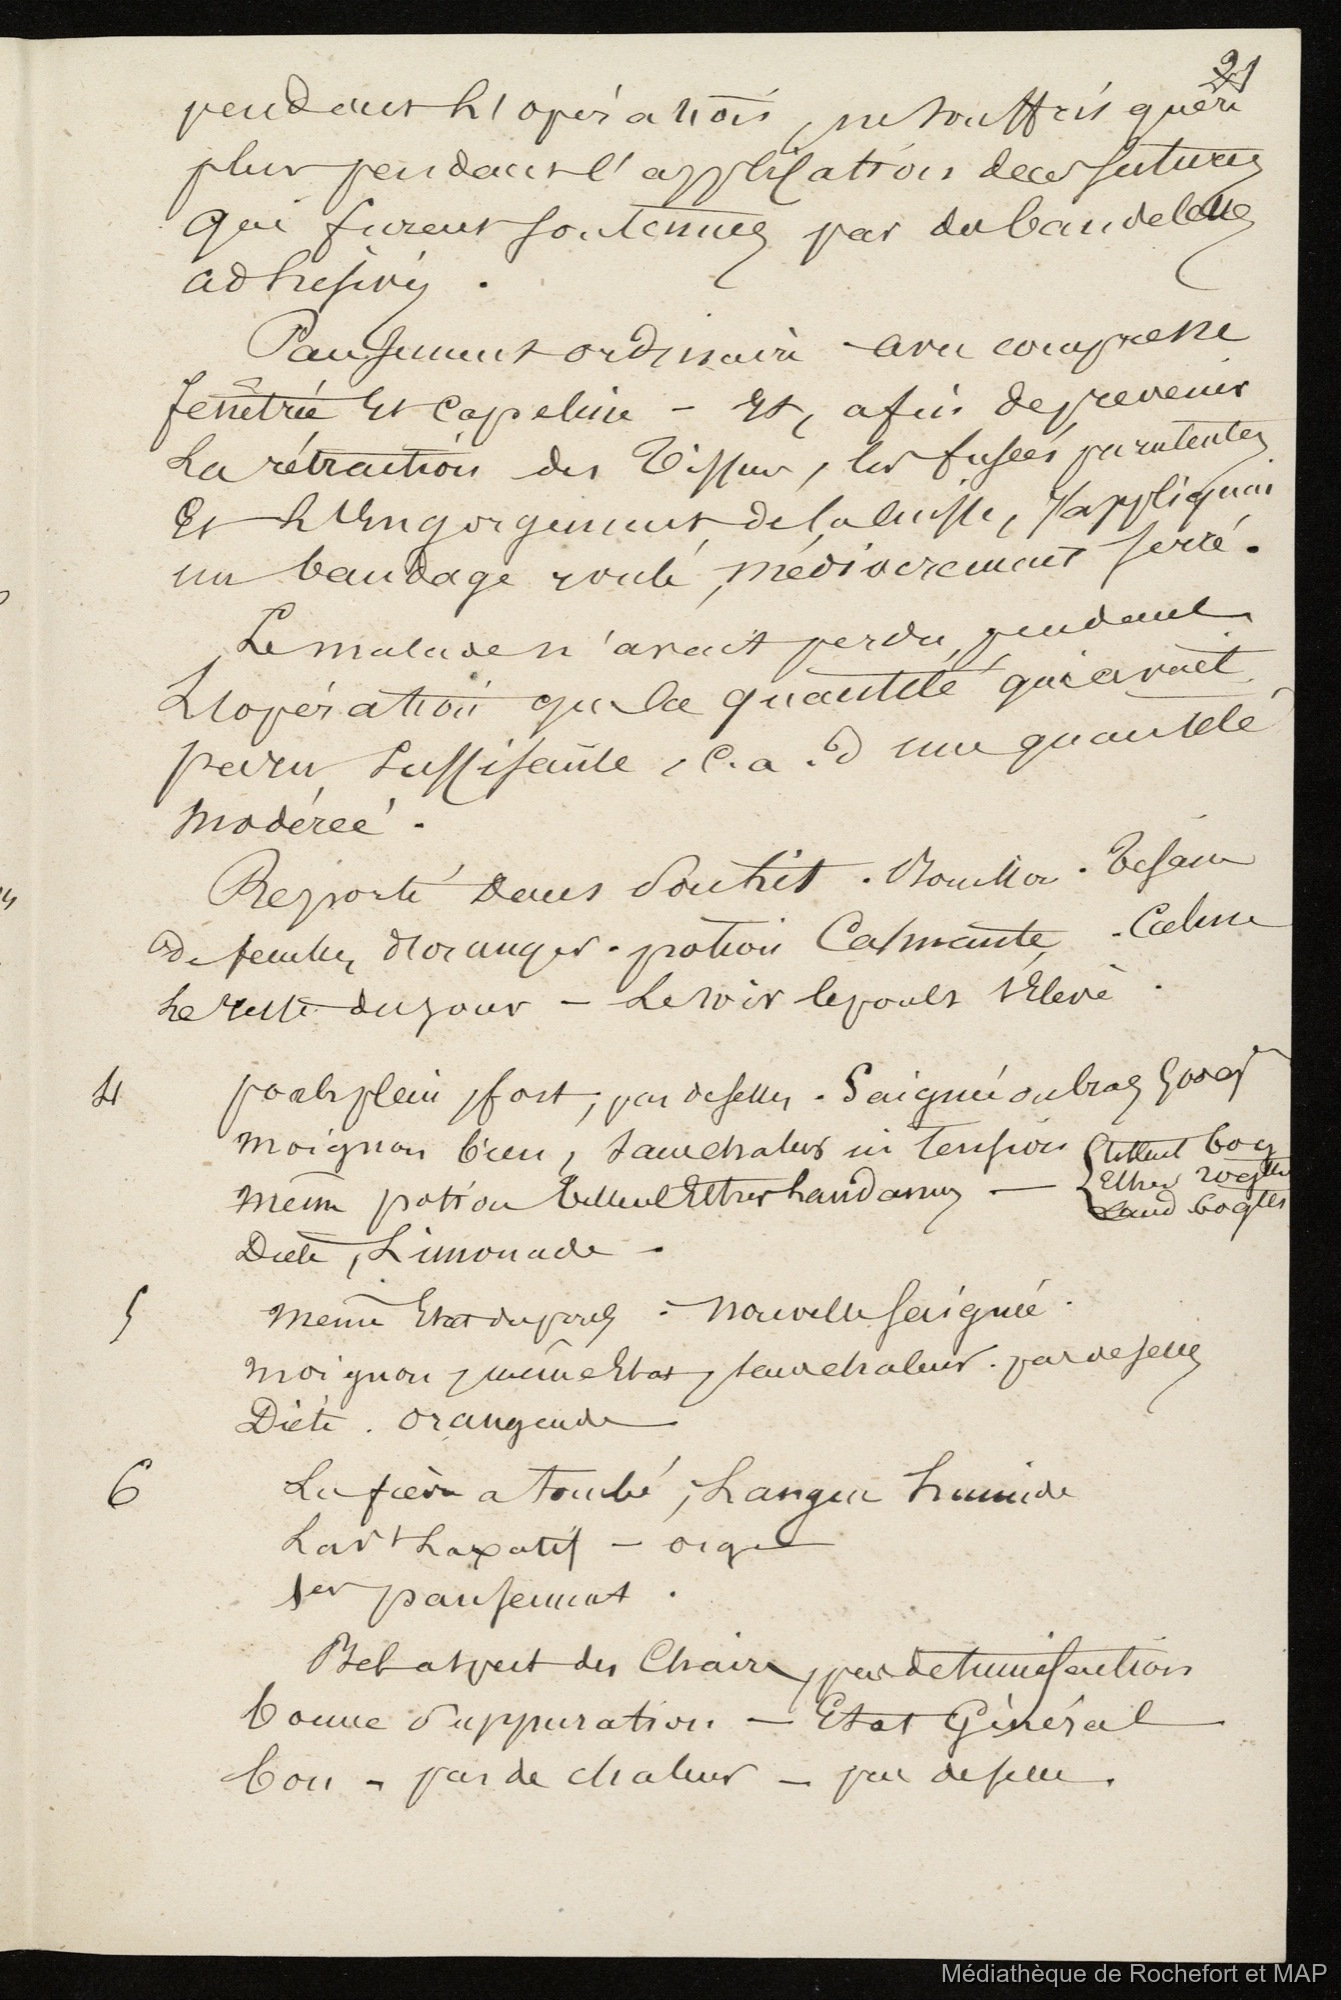 21
pendant l'opération, ne souffrit guère
plus pendant l'application de ces sutures
qui furent soutenues par des bandelettes
adhesives.
Pansement ordinaire avec compresse
fenêtrée et capeline - Et, afin de prevenir
La rétraction des Tissus, les fusées purulentes
Et L'Engorgement de la cuisse, J'appliquai
un bandage roulé, médiocrement serré.
Le malade n'avait perdu, pendant
L'opération que la quantité qui avait
paru Suffisante, c.a.d une quantité
modérée.
Reporté dans Son lit. Bouillon. Tisane
de feuilles d'oranger. potion Calmante. Calme
Le reste du jour - Le soir le pouls s'Elève.
4 pouls plein, fort, pas de selles. Saignée du bras
Moignon bien, sans chaleur ni tension { tilleul 60
même potion tilleul Ether Laudanum — Ether 20 gttes
Laud 60 gttes
Diète, Limonade -
5 Même Etat du pouls. Nouvelle Saignée.
Moignon, même Etat, sans chaleur. pas de selles
Diète. orangeade
6 La fièvre a tombé, Langue humide
Lavt Laxatif - orge
1er pansement.
Bel aspect des Chairs, pas de tuméfaction
bonne Suppuration - Etat Général
bon - pas de chaleur - pas de selle.
Médiathèque de Rochefort et MAP